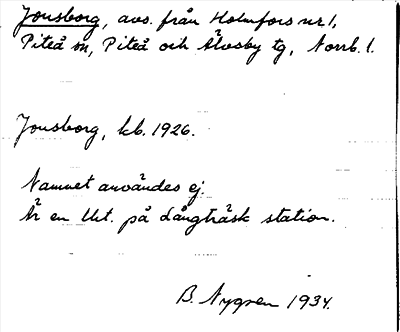 Jonsborg, avs. från Holmfors nr 1,
Piteå sn, Piteå och Älvsby tg, Norrb. l.
Jonsborg, kb. 1926.
Namnet användes ej.
Är en lht. på Långträsk station.
B. Nygren 1934.